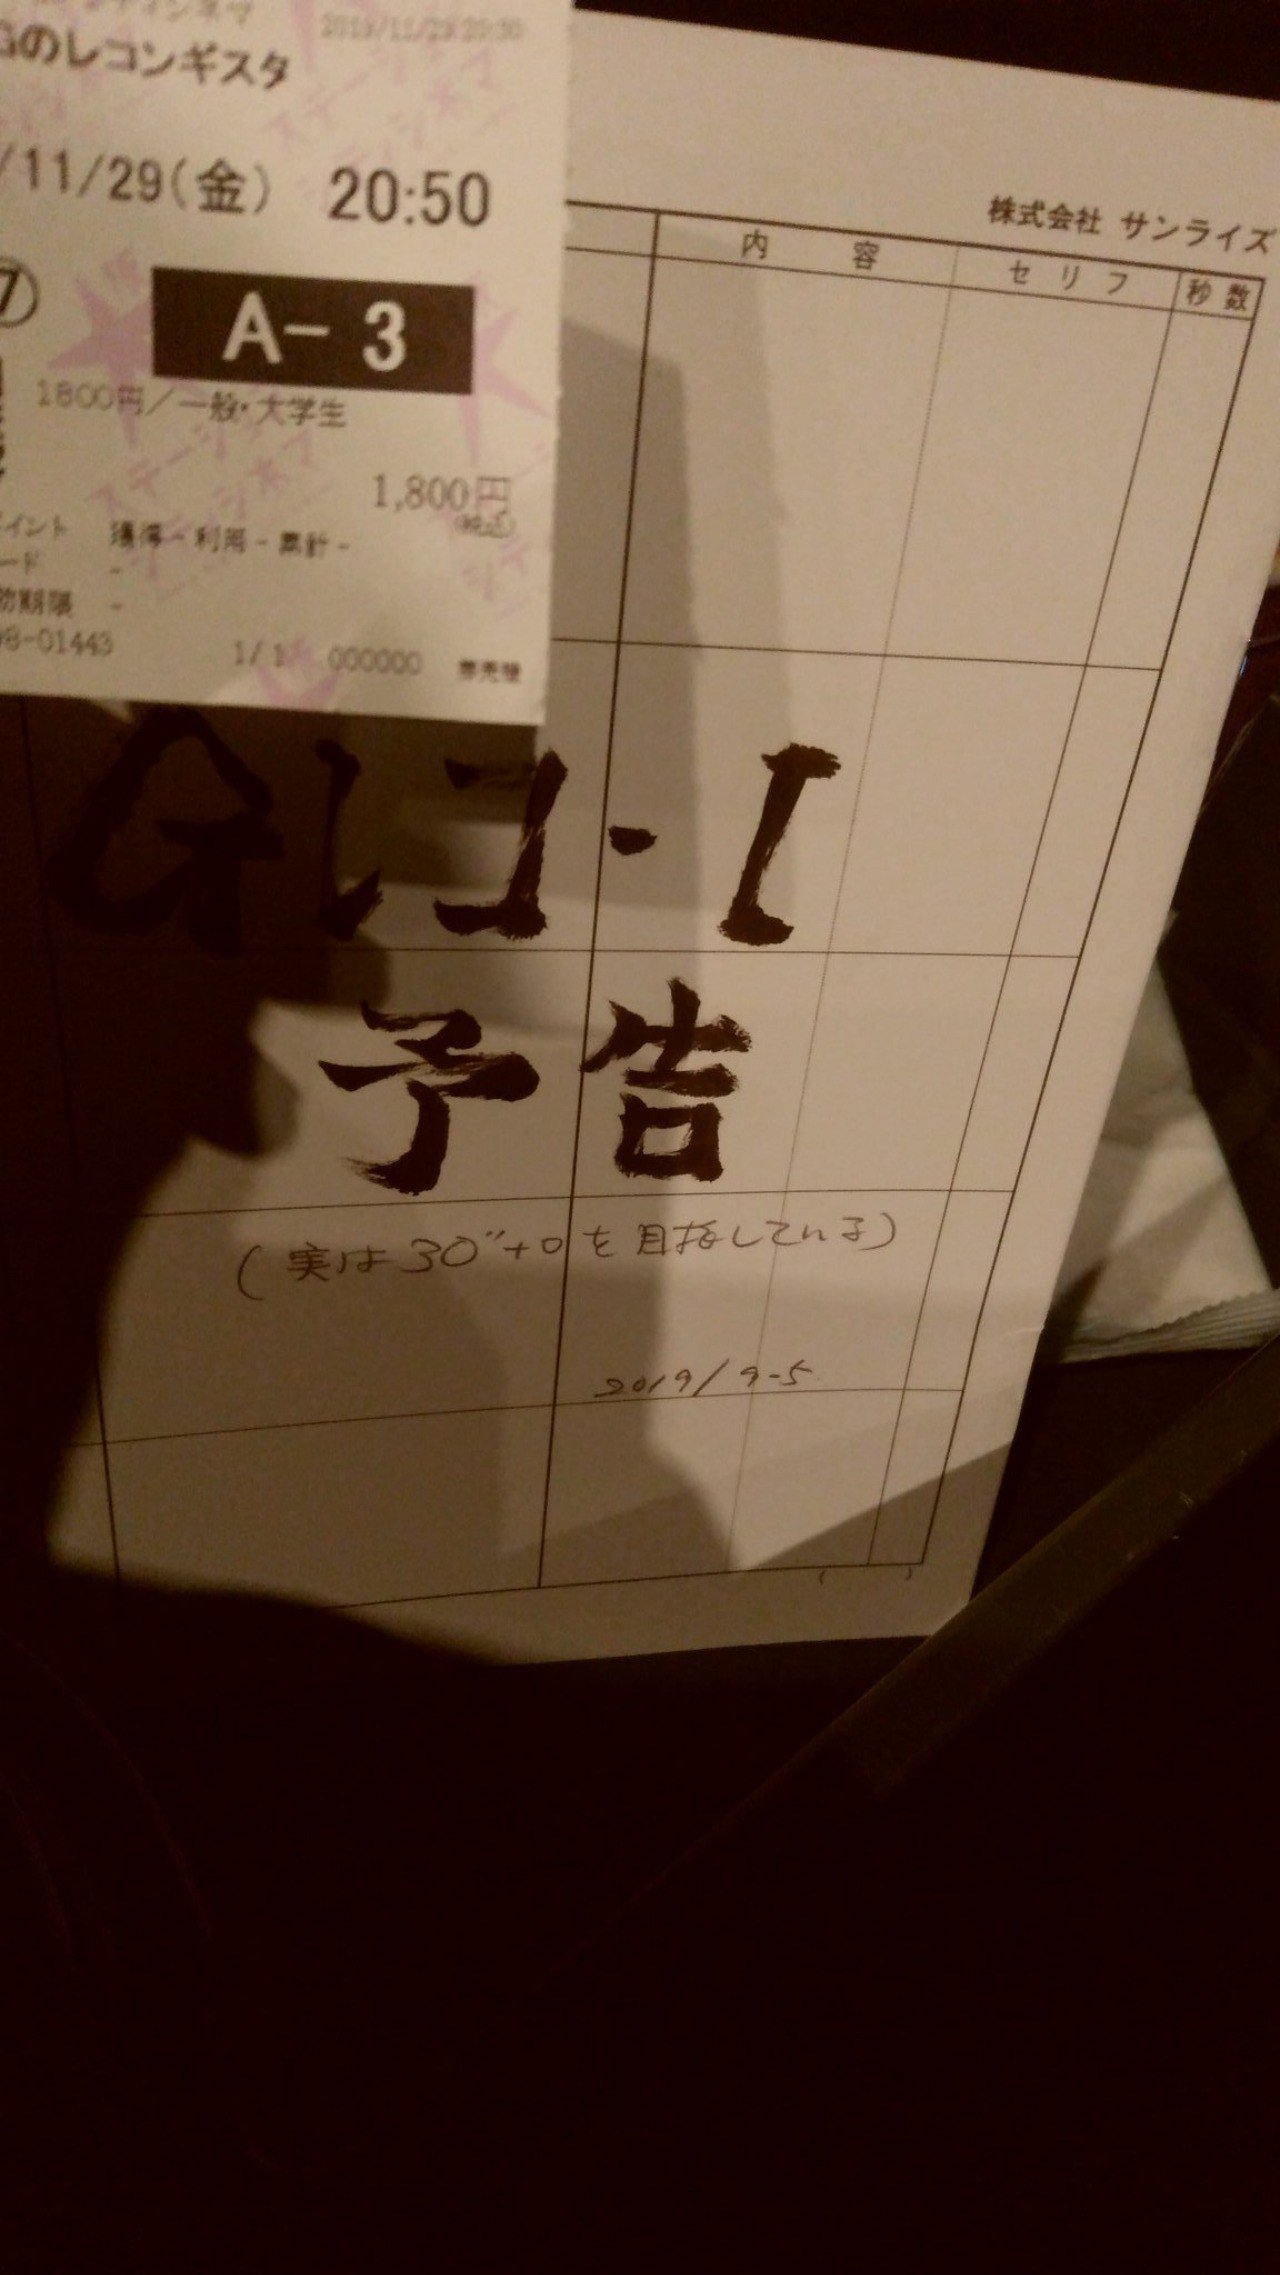 2019/11/29 20:30
Gのレコンギスタ
/11/29(金) 20:50
⑦
A- 3
1800円/一般・大学生
1,800円
(税込)
イント 獲得 - 利用 - 累計 -
ード -
効期限 -
98-01443 1/1 000000 券売機
株式会社 サンライズ
内容 セリフ 秒数
Gレコ・I
予告
(実は30"+0を目指している)
2019/9-5
( )